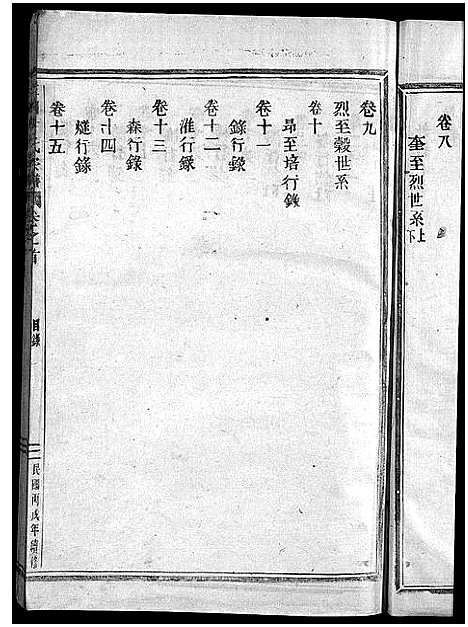 卷八
奎至烈世系上下
卷九
烈至穀世系
卷十
昂至培行錄
卷十一
錄行錄
卷十二
淮行錄
卷十三
森行錄
卷十四
燧行錄
卷十五
氏宗譜 卷之首
目錄
一
民國丙戌年續修